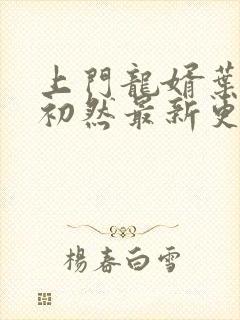 上門龍婿葉
初然最新更
楊春白雪